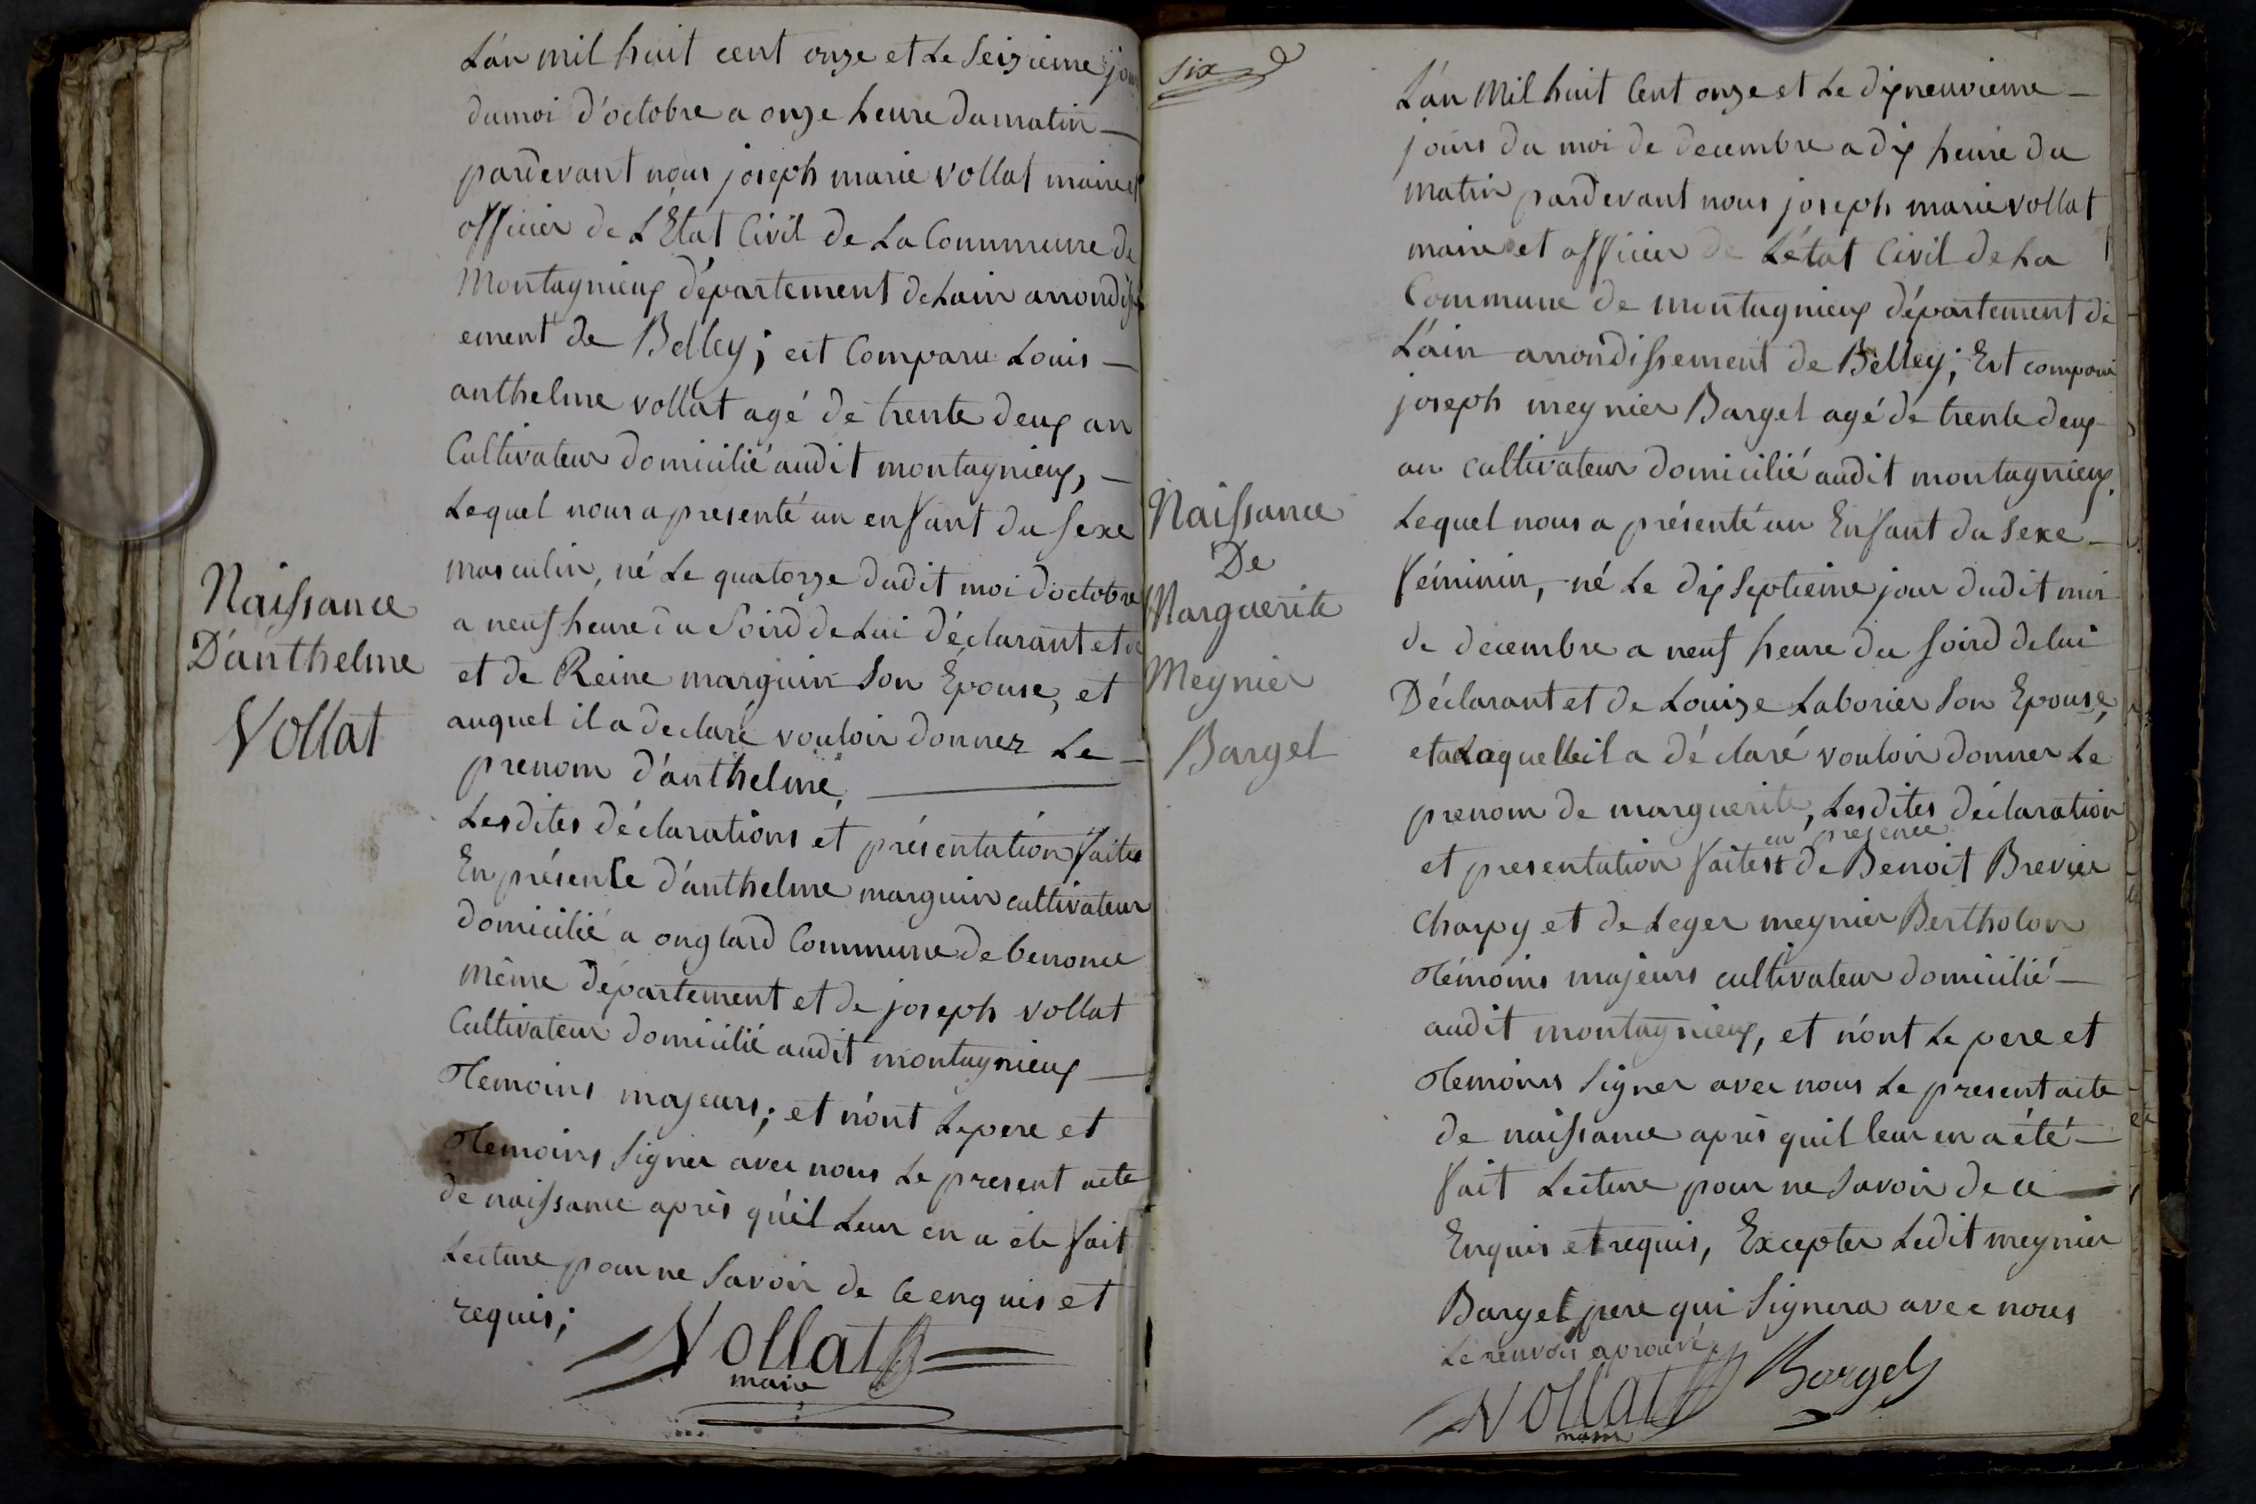 Naissance
D'anthelme
Vollat
L'an mil huit cent onze et Le Seizieme jour
du moi d'octobre a onze heure du matin
pardevant nous joseph marie vollat maire et
officier de L'Etat Civil de La Commune de
Montagnieux département de Lain arrondiss
ement de Belley; est Comparu Louis
anthelme vollat agé de trente deux an
Cultivateur domicilié audit montagnieux,
Lequel nous a presenté un enfant du Sexe
masculin, né Le quatorze dudit moi d'octobre
a neuf heure du Soird de Lui déclarant et de
et de Reine marguin Son Epouse, et
auquel il a declaré vouloir donner Le
prenom d'anthelme,
Lesdites déclarations et présentation faites
En présence d'anthelme marguin cultivateur
domicilié a onglard Commune de benonce
même département et de joseph vollat
Cultivateur domicilié audit montagnieux
Temoins majeurs; et n'ont Le pere et
Temoins Signer avec nous Le present acte
de naissance après qu'il Leur en a été fait
Lecture pour ne Savoir de Ce enquis et
requis;
Vollat
maire
Six
Naissance
De
Marguerite
Meynier
Bargel
L'an Mil huit Cent onze et Le dixneuvieme
jours du moi de decembre a dix heure du
matin pardevant nous joseph marie vollat
maire et officier de L'état Civil de La
Commune de montagnieux département de
L'ain arrondissement de Belley; Est comparu
joseph meynier Bargel agé de trente deux
an cultivateur domicilié audit montagnieux.
Lequel nous a présenté un Enfant du Sexe
féminin, né Le dix Septieme jour dudit moi
de decembre a neuf heure du Soird de lui
Déclarant et de Louize Laborier Son Epouse,
et a Laquelle il a déclaré vouloir donner Le
prenom de marguerite, Lesdites déclaration
en presence
et presentation faites de Benoit Brevier
Charpy et de Leger meynier Bertholon
Témoins majeurs cultivateur domicilié
audit montagnieux, et n'ont Le pere et
Temoins Signer avec nous Le present acte
de naissance après quil leur en a été
fait Lecture pour ne Savoir de ce
Enquis et requis, Excepter Ledit meynier
Bargel pere qui Signera avec nous
Le renvoi aprouvé
Vollat Bargel
maire